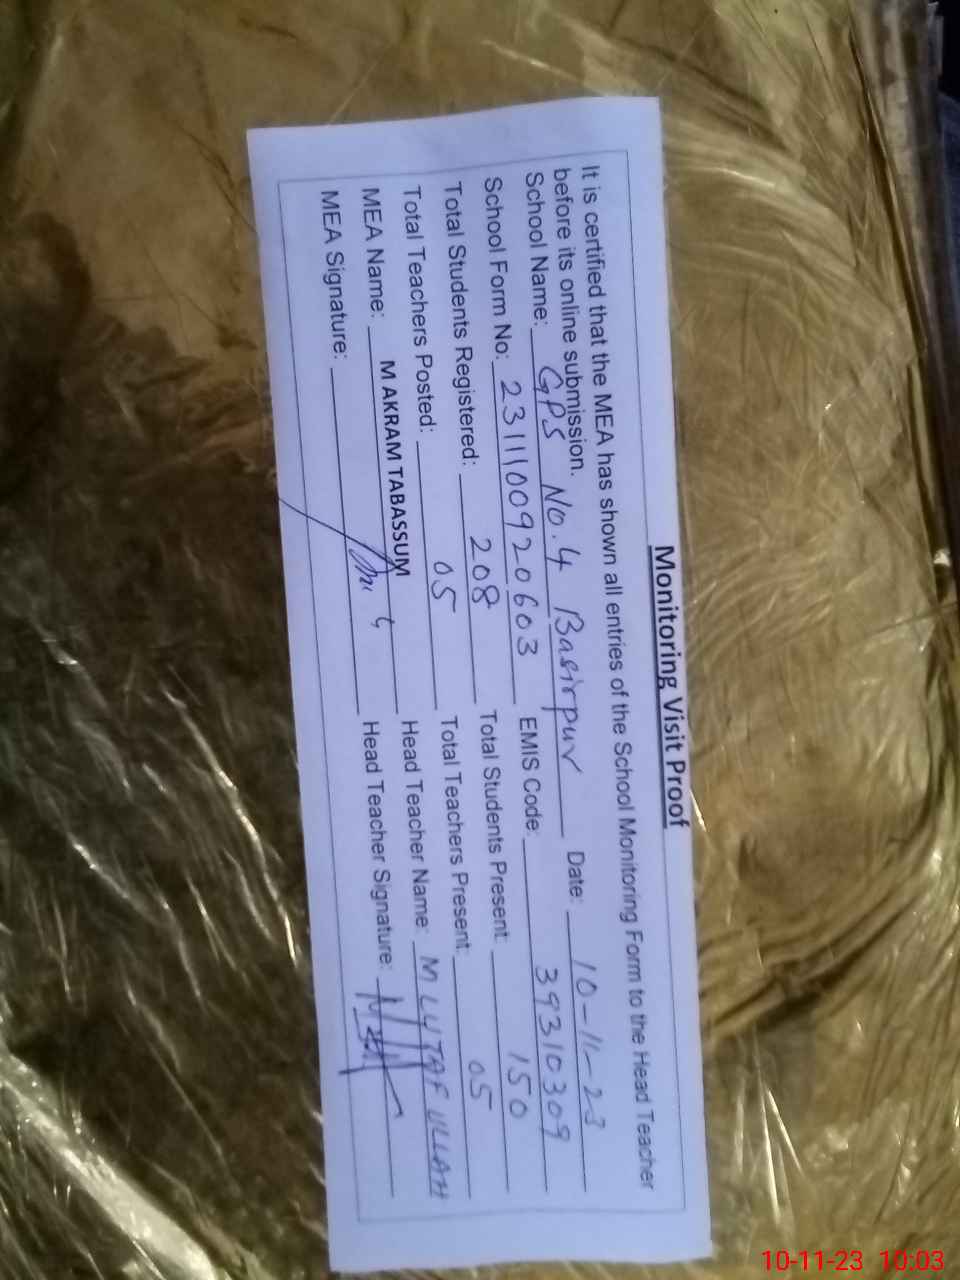 Monitoring Visit Proof
It is certified that the MEA has shown all entries of the School Monitoring Form to the Head Teacher
before its online submission.
School Name: GPS No.4 Basirpur Date: 10-11-23
School Form No: 2311100920603 EMIS Code: 39310309
Total Students Registered: 208 Total Students Present: 150
Total Teachers Posted: 05 Total Teachers Present: 05
MEA Name: M AKRAM TABASSUM Head Teacher Name: M LUTAF ULLAH
MEA Signature: Head Teacher Signature:
10-11-23 10:03